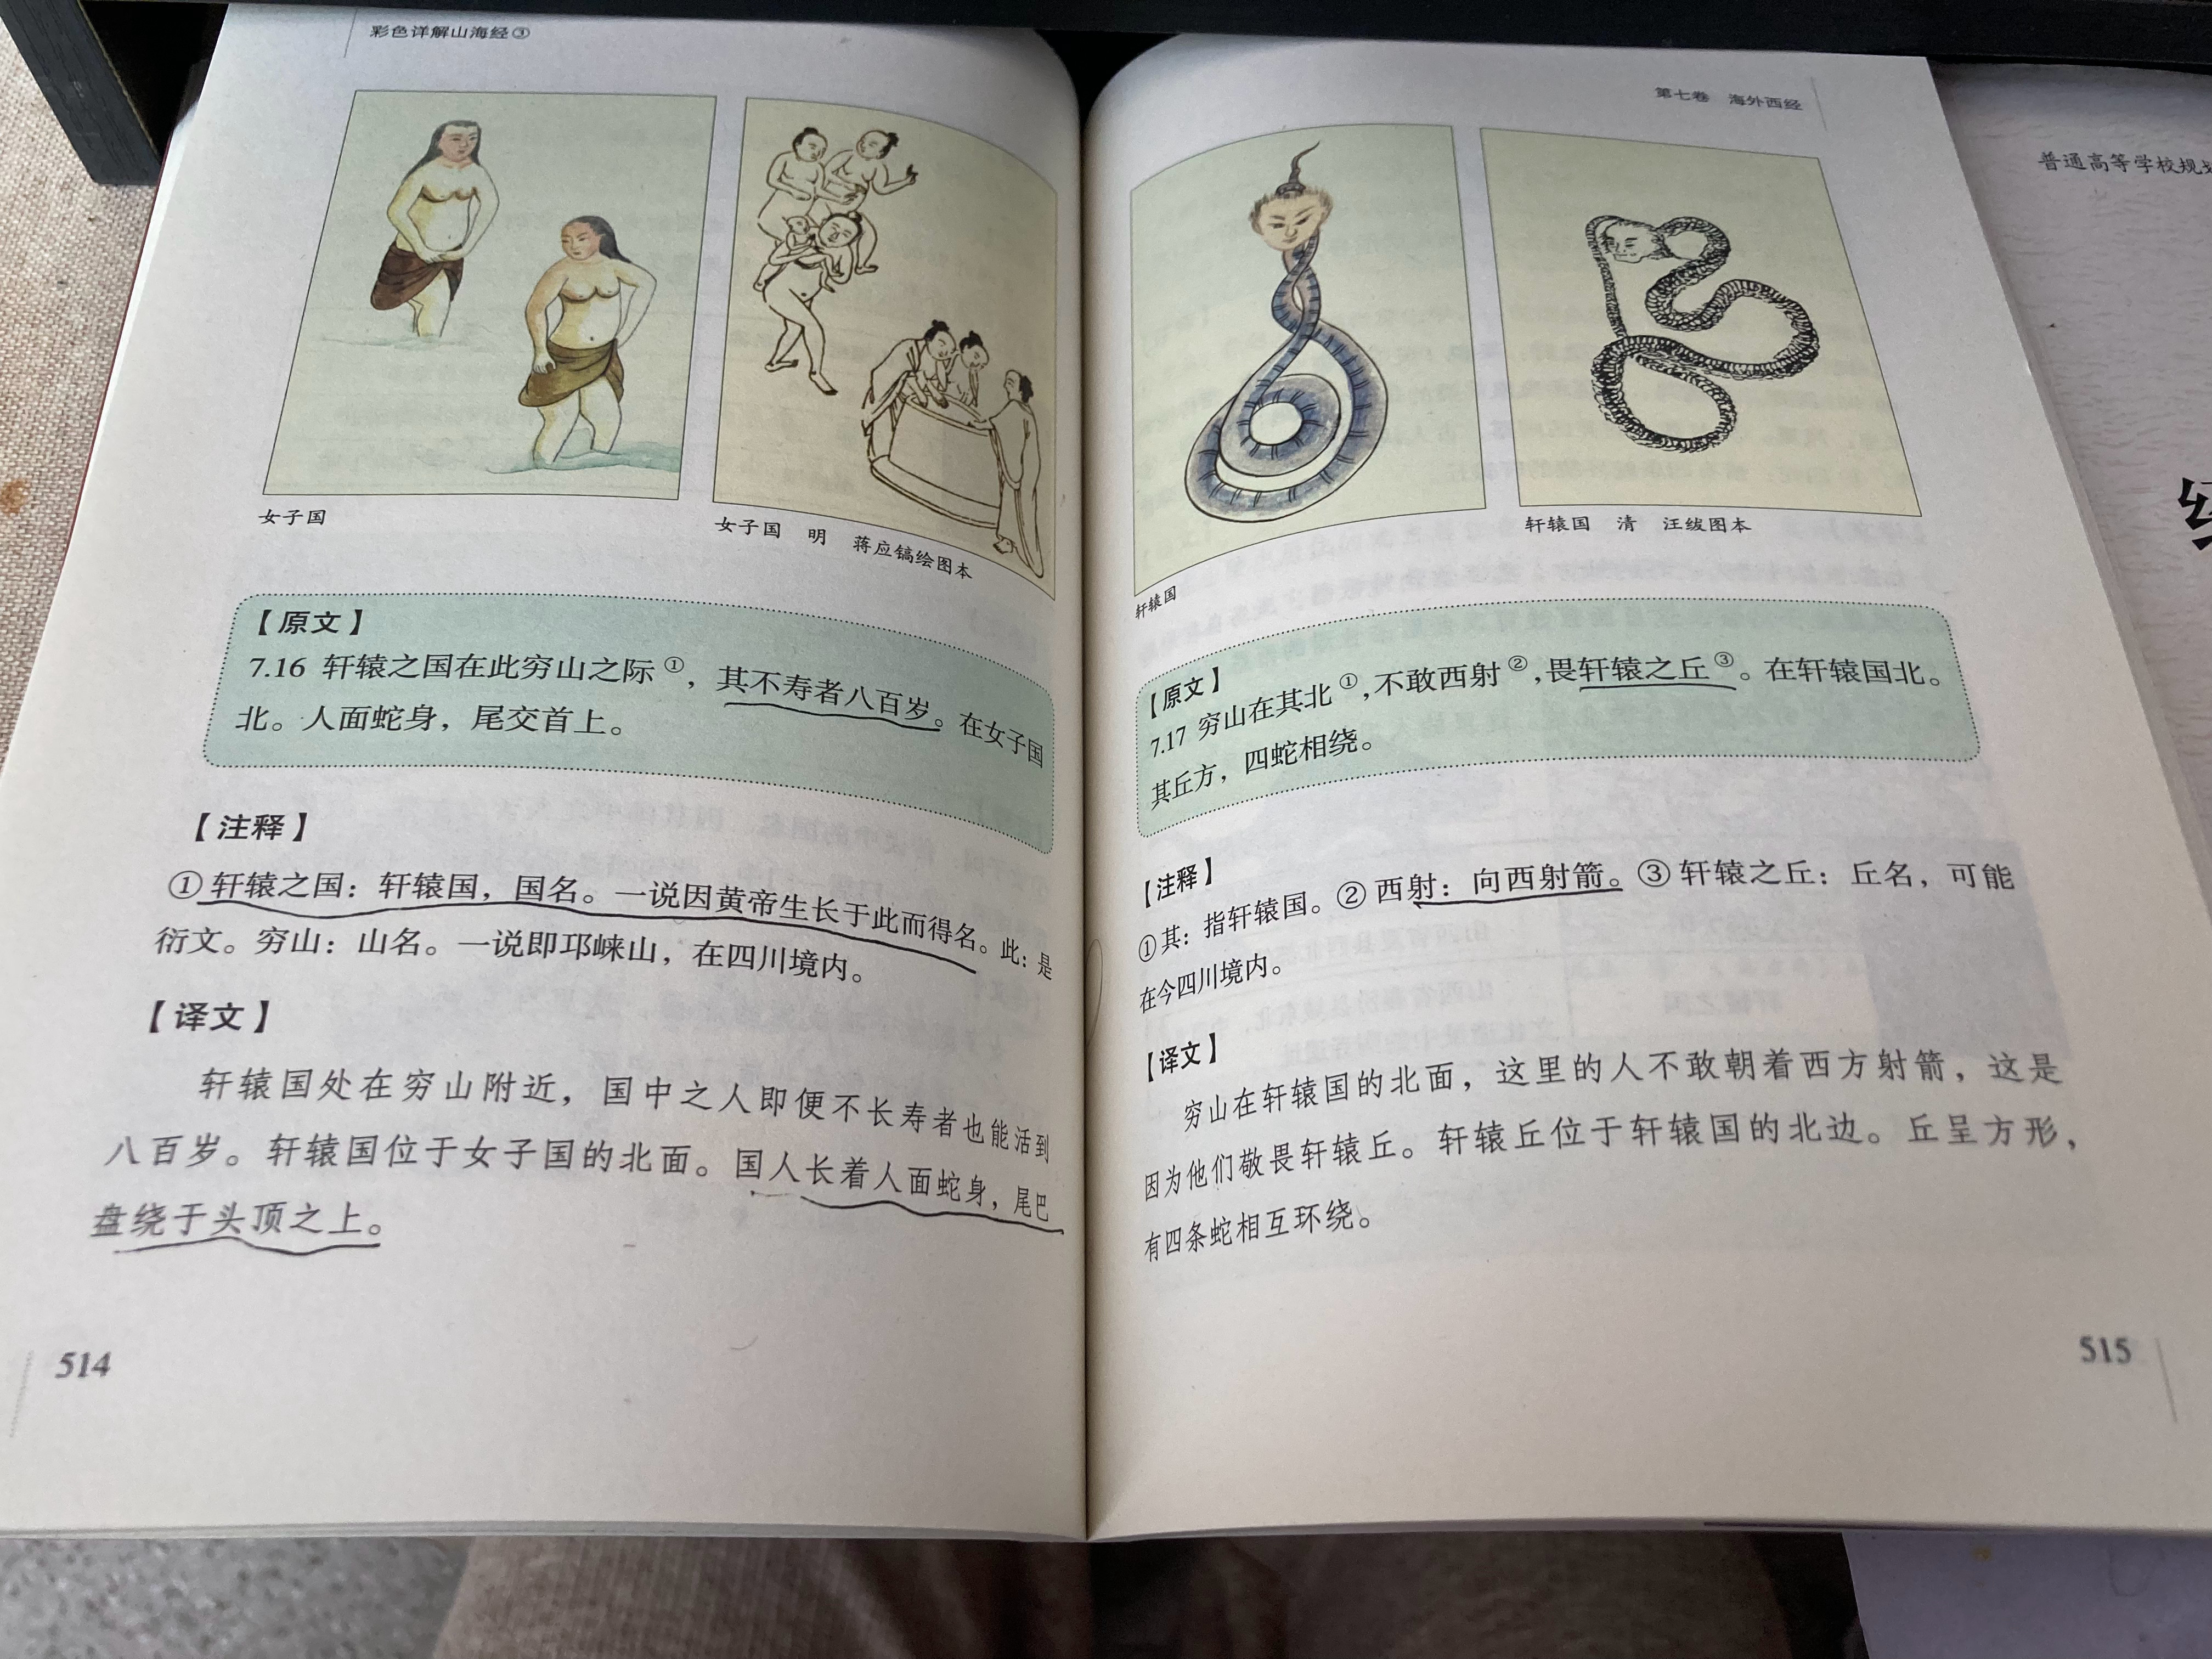 彩色详解山海经③
女子国
女子国 明 蒋应镐绘图本
【原文】
7.16 轩辕之国在此穷山之际①，其不寿者八百岁。在女子国
北。人面蛇身，尾交首上。
【注释】
①轩辕之国：轩辕国，国名。一说因黄帝生长于此而得名。此：是
衍文。穷山：山名。一说即邛崃山，在四川境内。
【译文】
轩辕国处在穷山附近，国中之人即便不长寿者也能活到
八百岁。轩辕国位于女子国的北面。国人长着人面蛇身，尾巴
盘绕于头顶之上。
514
第七卷 海外西经
轩辕国
轩辕国 清 汪绂图本
【原文】
7.17 穷山在其北①,不敢西射②,畏轩辕之丘③。在轩辕国北。
其丘方，四蛇相绕。
【注释】
①其：指轩辕国。②西射：向西射箭。③轩辕之丘：丘名，可能
在今四川境内。
【译文】
穷山在轩辕国的北面，这里的人不敢朝着西方射箭，这是
因为他们敬畏轩辕丘。轩辕丘位于轩辕国的北边。丘呈方形，
有四条蛇相互环绕。
515
普通高等学校规